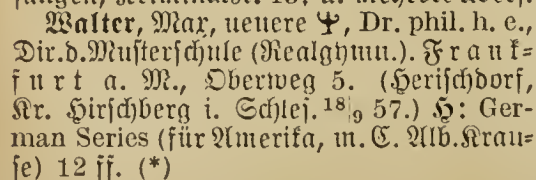 Walter, Max, neuere Ψ, Dr. phil. h. e.,
Dir.d.Musterschule (Realgymn.). Frank=
furt a. M., Oberweg 5. (Herischdorf,
Kr. Hirschberg i. Schles. 18|9 57.) H: Ger=
man Series (für Amerika, m. C. Alb.Krau=
se) 12 ff. (*)